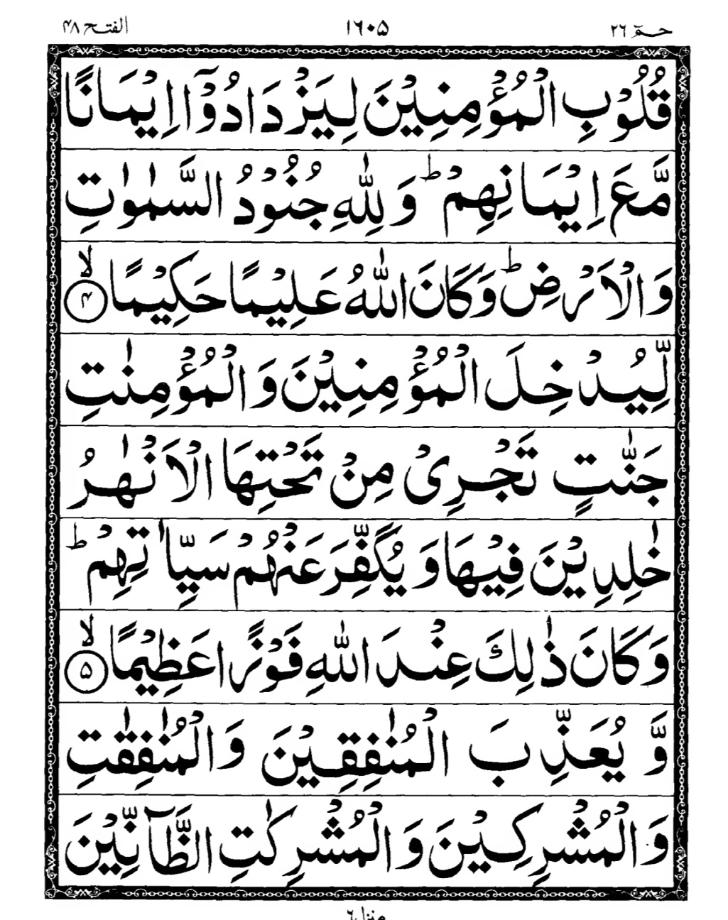 حٰمٓ ٢٦
١٦٠٥
الفتح ٤٨
قُلُوْبِ الْمُؤْمِنِيْنَ لِيَزْدَادُوْۤا اِيْمَانًا
مَّعَ اِيْمَانِهِمْ ؕ وَ لِلّٰهِ جُنُوْدُ السَّمٰوٰتِ
وَ الْاَرْضِ ؕ وَ كَانَ اللّٰهُ عَلِيْمًا حَكِيْمًا ۙ ﴿۴﴾
لِّيُدْخِلَ الْمُؤْمِنِيْنَ وَ الْمُؤْمِنٰتِ
جَنّٰتٍ تَجْرِىْ مِنْ تَحْتِهَا الْاَنْهٰرُ
خٰلِدِيْنَ فِيْهَا وَ يُكَفِّرَ عَنْهُمْ سَيِّاٰتِهِمْ ؕ
وَ كَانَ ذٰلِكَ عِنْدَ اللّٰهِ فَوْزًا عَظِيْمًا ۙ ﴿۵﴾
وَّ يُعَذِّبَ الْمُنٰفِقِيْنَ وَ الْمُنٰفِقٰتِ
وَ الْمُشْرِكِيْنَ وَ الْمُشْرِكٰتِ الظَّآنِّيْنَ
منزل ٦